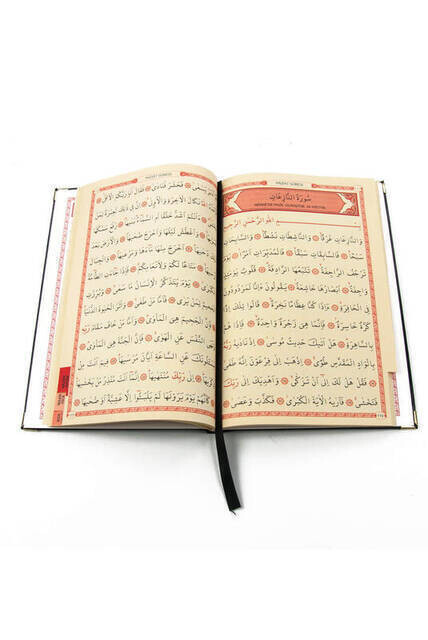 سُورَةُ النَّازِعَاتِ
اللهِ الرَّحْمٰنِ الرَّحِيمِ
وَالنَّازِعَاتِ غَرْقًا وَالنَّاشِطَاتِ نَشْطًا وَالسَّابِحَاتِ
سَبْحًا فَالسَّابِقَاتِ سَبْقًا فَالْمُدَبِّرَاتِ اَمْرًا يَوْمَ
تَرْجُفُ الرَّاجِفَةُ تَتْبَعُهَا الرَّادِفَةُ قُلُوبٌ يَوْمَئِذٍ
وَاجِفَةٌ اَبْصَارُهَا خَاشِعَةٌ يَقُولُونَ ءَاِنَّا لَمَرْدُودُونَ
فِي الْحَافِرَةِ ءَاِذَا كُنَّا عِظَامًا نَخِرَةً قَالُوا تِلْكَ اِذًا
كَرَّةٌ خَاسِرَةٌ فَاِنَّمَا هِيَ زَجْرَةٌ وَاحِدَةٌ فَاِذَا هُمْ
بِالسَّاهِرَةِ هَلْ اَتٰيكَ حَدِيثُ مُوسٰى اِذْ نَادٰيهُ رَبُّهُ
بِالْوَادِ الْمُقَدَّسِ طُوًى اِذْهَبْ اِلٰى فِرْعَوْنَ اِنَّهُ طَغٰى
فَقُلْ هَلْ لَكَ اِلٰى اَنْ تَزَكّٰى وَاَهْدِيَكَ اِلٰى رَبِّكَ
فَتَخْشٰى فَاَرٰيهُ الْاٰيَةَ الْكُبْرٰى فَكَذَّبَ وَعَصٰى
يَسْعٰى فَحَشَرَ فَنَادٰى فَقَالَ اَنَا رَبُّكُمُ الْاَعْلٰى
نَكَالَ الْاٰخِرَةِ وَالْاُولٰى اِنَّ فِي ذٰلِكَ لَعِبْرَةً لِمَنْ
ءَاَنْتُمْ اَشَدُّ خَلْقًا اَمِ السَّمَاءُ بَنٰيهَا رَفَعَ سَمْكَهَا
وَاَغْطَشَ لَيْلَهَا وَاَخْرَجَ ضُحٰيهَا وَالْاَرْضَ بَعْدَ
اَخْرَجَ مِنْهَا مَاءَهَا وَمَرْعٰيهَا وَالْجِبَالَ
مَتَاعًا لَكُمْ وَلِاَنْعَامِكُمْ فَاِذَا جَاءَتِ الطَّامَّةُ
يَوْمَ يَتَذَكَّرُ الْاِنْسَانُ مَا سَعٰى وَبُرِّزَتِ
الْجَحِيمُ لِمَنْ يَرٰى فَاَمَّا مَنْ طَغٰى وَاٰثَرَ الْحَيٰوةَ الدُّنْيَا
فَاِنَّ الْجَحِيمَ هِيَ الْمَأْوٰى وَاَمَّا مَنْ خَافَ مَقَامَ رَبِّهِ
النَّفْسَ عَنِ الْهَوٰى فَاِنَّ الْجَنَّةَ هِيَ الْمَأْوٰى
عَنِ السَّاعَةِ اَيَّانَ مُرْسٰيهَا فِيمَ اَنْتَ مِنْ
اِلٰى رَبِّكَ مُنْتَهٰيهَا اِنَّمَا اَنْتَ مُنْذِرُ مَنْ يَخْشٰيهَا
كَاَنَّهُمْ يَوْمَ يَرَوْنَهَا لَمْ يَلْبَثُوا اِلَّا عَشِيَّةً اَوْ ضُحٰيهَا